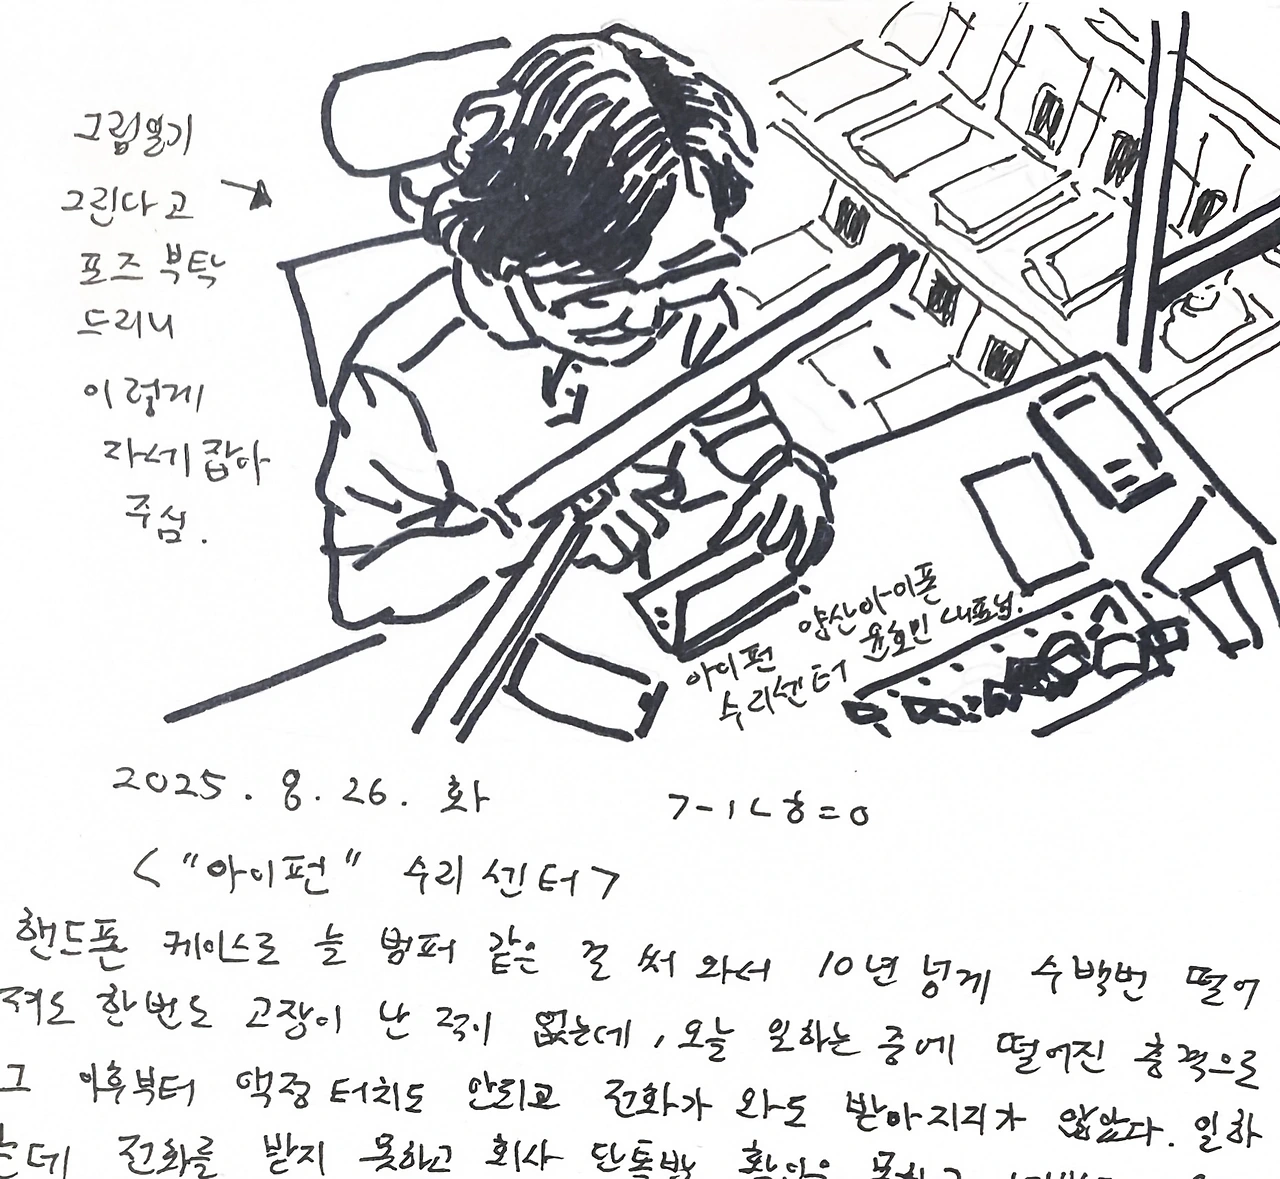 그림일기
그린다고
포즈 부탁
드리니
이렇게
자세 잡아
주심.
아이펀
수리센터
양산아이폰
윤호민 대표님.
2025. 8. 26. 화
ㄱㅡㅣㄴ ㅎ = 0
<"아이펀" 수리 센터>
핸드폰 케이스로 늘 범퍼 같은 걸 써 와서 10년 넘게 수백번 떨어
져도 한번도 고장이 난 적이 없는데, 오늘 일하는 중에 떨어진 충격으로
그 이후부터 액정 터치도 안되고 전화가 와도 받아지지가 않았다. 일하
는데 전화를 받지 못하고 회사 단톡방